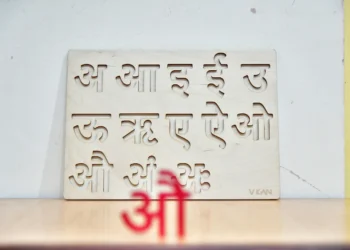 अ आ इ ई उ
ऊ ऋ ए ऐ ओ
औ अं अः
VEAN
औ